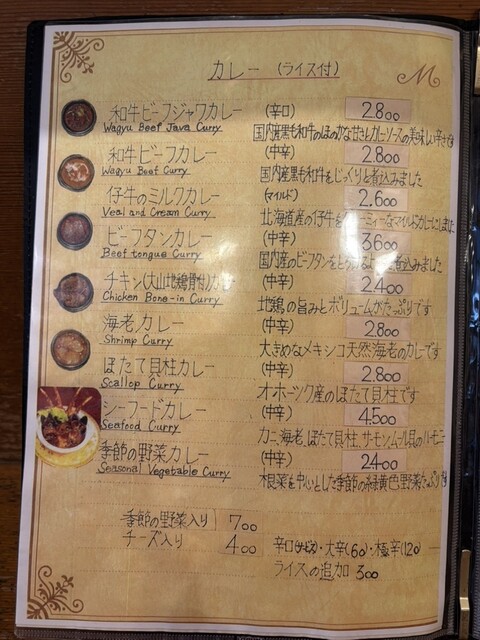 カレー (ライス付)
M
和牛ビーフジャワカレー (辛口) 2.800
Wagyu Beef Java Curry
国内産黒毛和牛のほのかな甘さとカレーソースの美味しい辛さを
和牛ビーフカレー (中辛) 2.800
Wagyu Beef Curry
国内産黒毛和牛をじっくりと煮込みました
仔牛のミルクカレー (マイルド) 2.600
Veal and Cream Curry
北海道産の仔牛を
ビーフタンカレー (中辛) 3.600
Beef tongue Curry
国内産のビーフタンを
チキン(大山地鶏骨付)カレー (中辛) 2.400
Chicken Bone-in Curry
地鶏の旨みとボリュームがたっぷりです
海老カレー (中辛) 2.800
Shrimp Curry
大きめなメキシコ天然海老のカレーです
ほたて貝柱カレー (中辛) 2.800
Scallop Curry
オホーツク産のほたて貝柱です
シーフードカレー (中辛) 4.500
Seafood Curry
カニ、海老、ほたて貝柱、サーモン、ムール貝のハーモニー
季節の野菜カレー (中辛) 2400
Seasonal Vegetable Curry
根菜を中心とした季節の緑黄色野菜たっぷりです
季節の野菜入り 700
チーズ入り 400
辛口(サービス)・大辛(60)・極辛(120)
ライスの追加 300